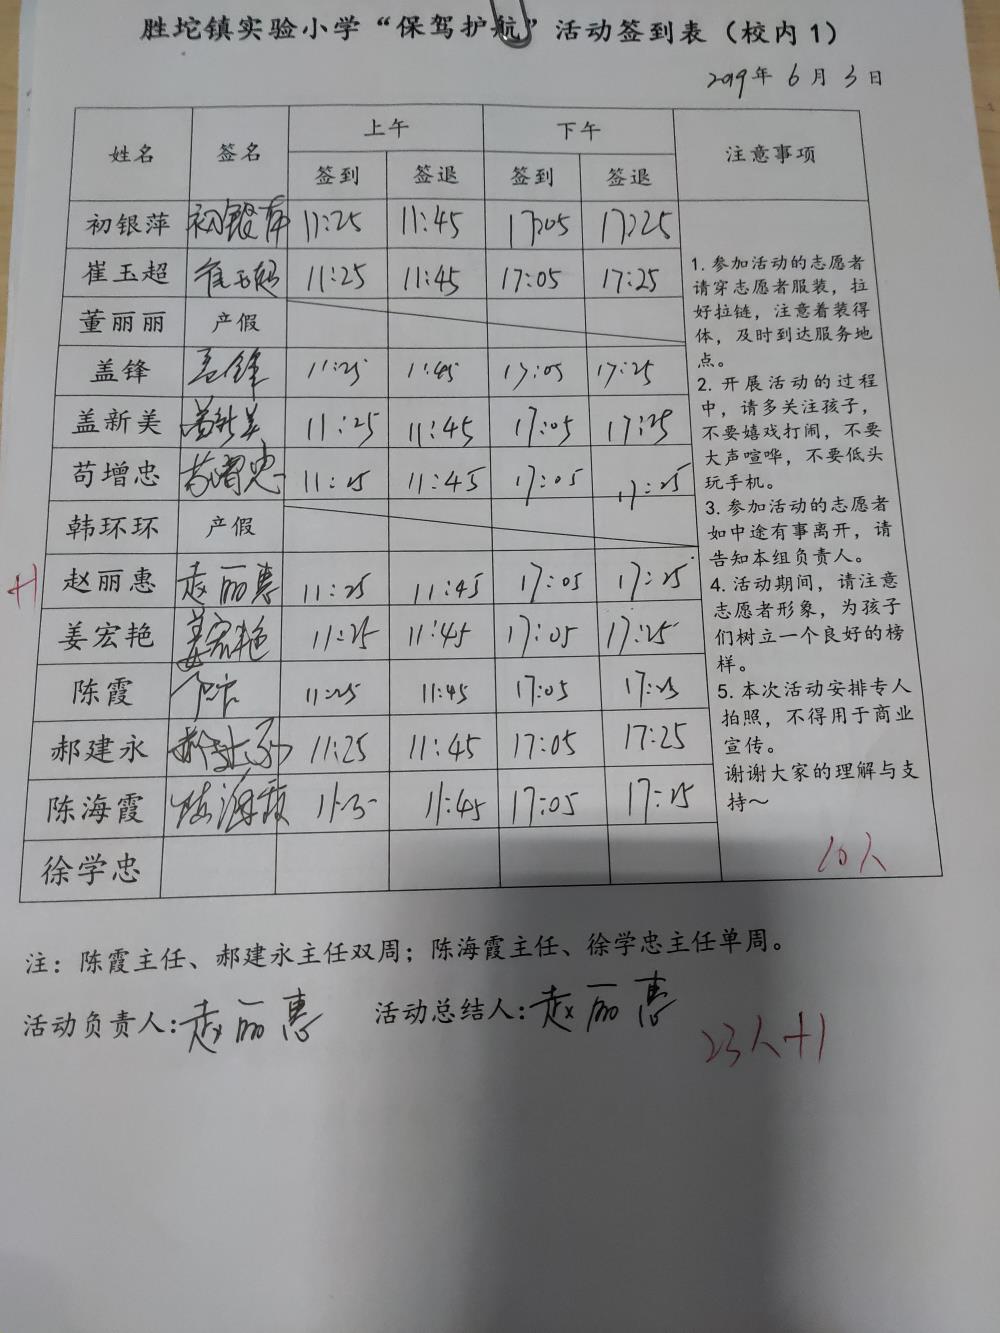 胜坨镇实验小学“保驾护航”活动签到表（校内1）
2019年 6月 3日
姓名 签名 上午 下午 注意事项
签到 签退 签到 签退
初银萍 初银萍 11:25 11:45 17:05 17:25
崔玉超 崔玉超 11:25 11:45 17:05 17:25
董丽丽 产假
盖锋 盖锋 11:25 11:45 17:05 17:25
盖新美 盖新美 11:25 11:45 17:05 17:25
苟增忠 苟增忠 11:25 11:45 17:05 17:25
韩环环 产假
+1 赵丽惠 赵丽惠 11:25 11:45 17:05 17:25
姜宏艳 姜宏艳 11:25 11:45 17:05 17:25
陈霞 11:25 11:45 17:05 17:25
郝建永 11:25 11:45 17:05 17:25
陈海霞 陈海霞 11:45 17:05 17:25
徐学忠
1. 参加活动的志愿者
请穿志愿者服装，拉
好拉链，注意着装得
体，及时到达服务地
点。
2. 开展活动的过程
中，请多关注孩子，
不要嬉戏打闹，不要
大声喧哗，不要低头
玩手机。
3. 参加活动的志愿者
如中途有事离开，请
告知本组负责人。
4. 活动期间，请注意
志愿者形象，为孩子
们树立一个良好的榜
样。
5. 本次活动安排专人
拍照，不得用于商业
宣传。
谢谢大家的理解与支
持～
10人
注：陈霞主任、郝建永主任双周；陈海霞主任、徐学忠主任单周。
活动负责人:赵丽惠 活动总结人:赵丽惠
23人+1